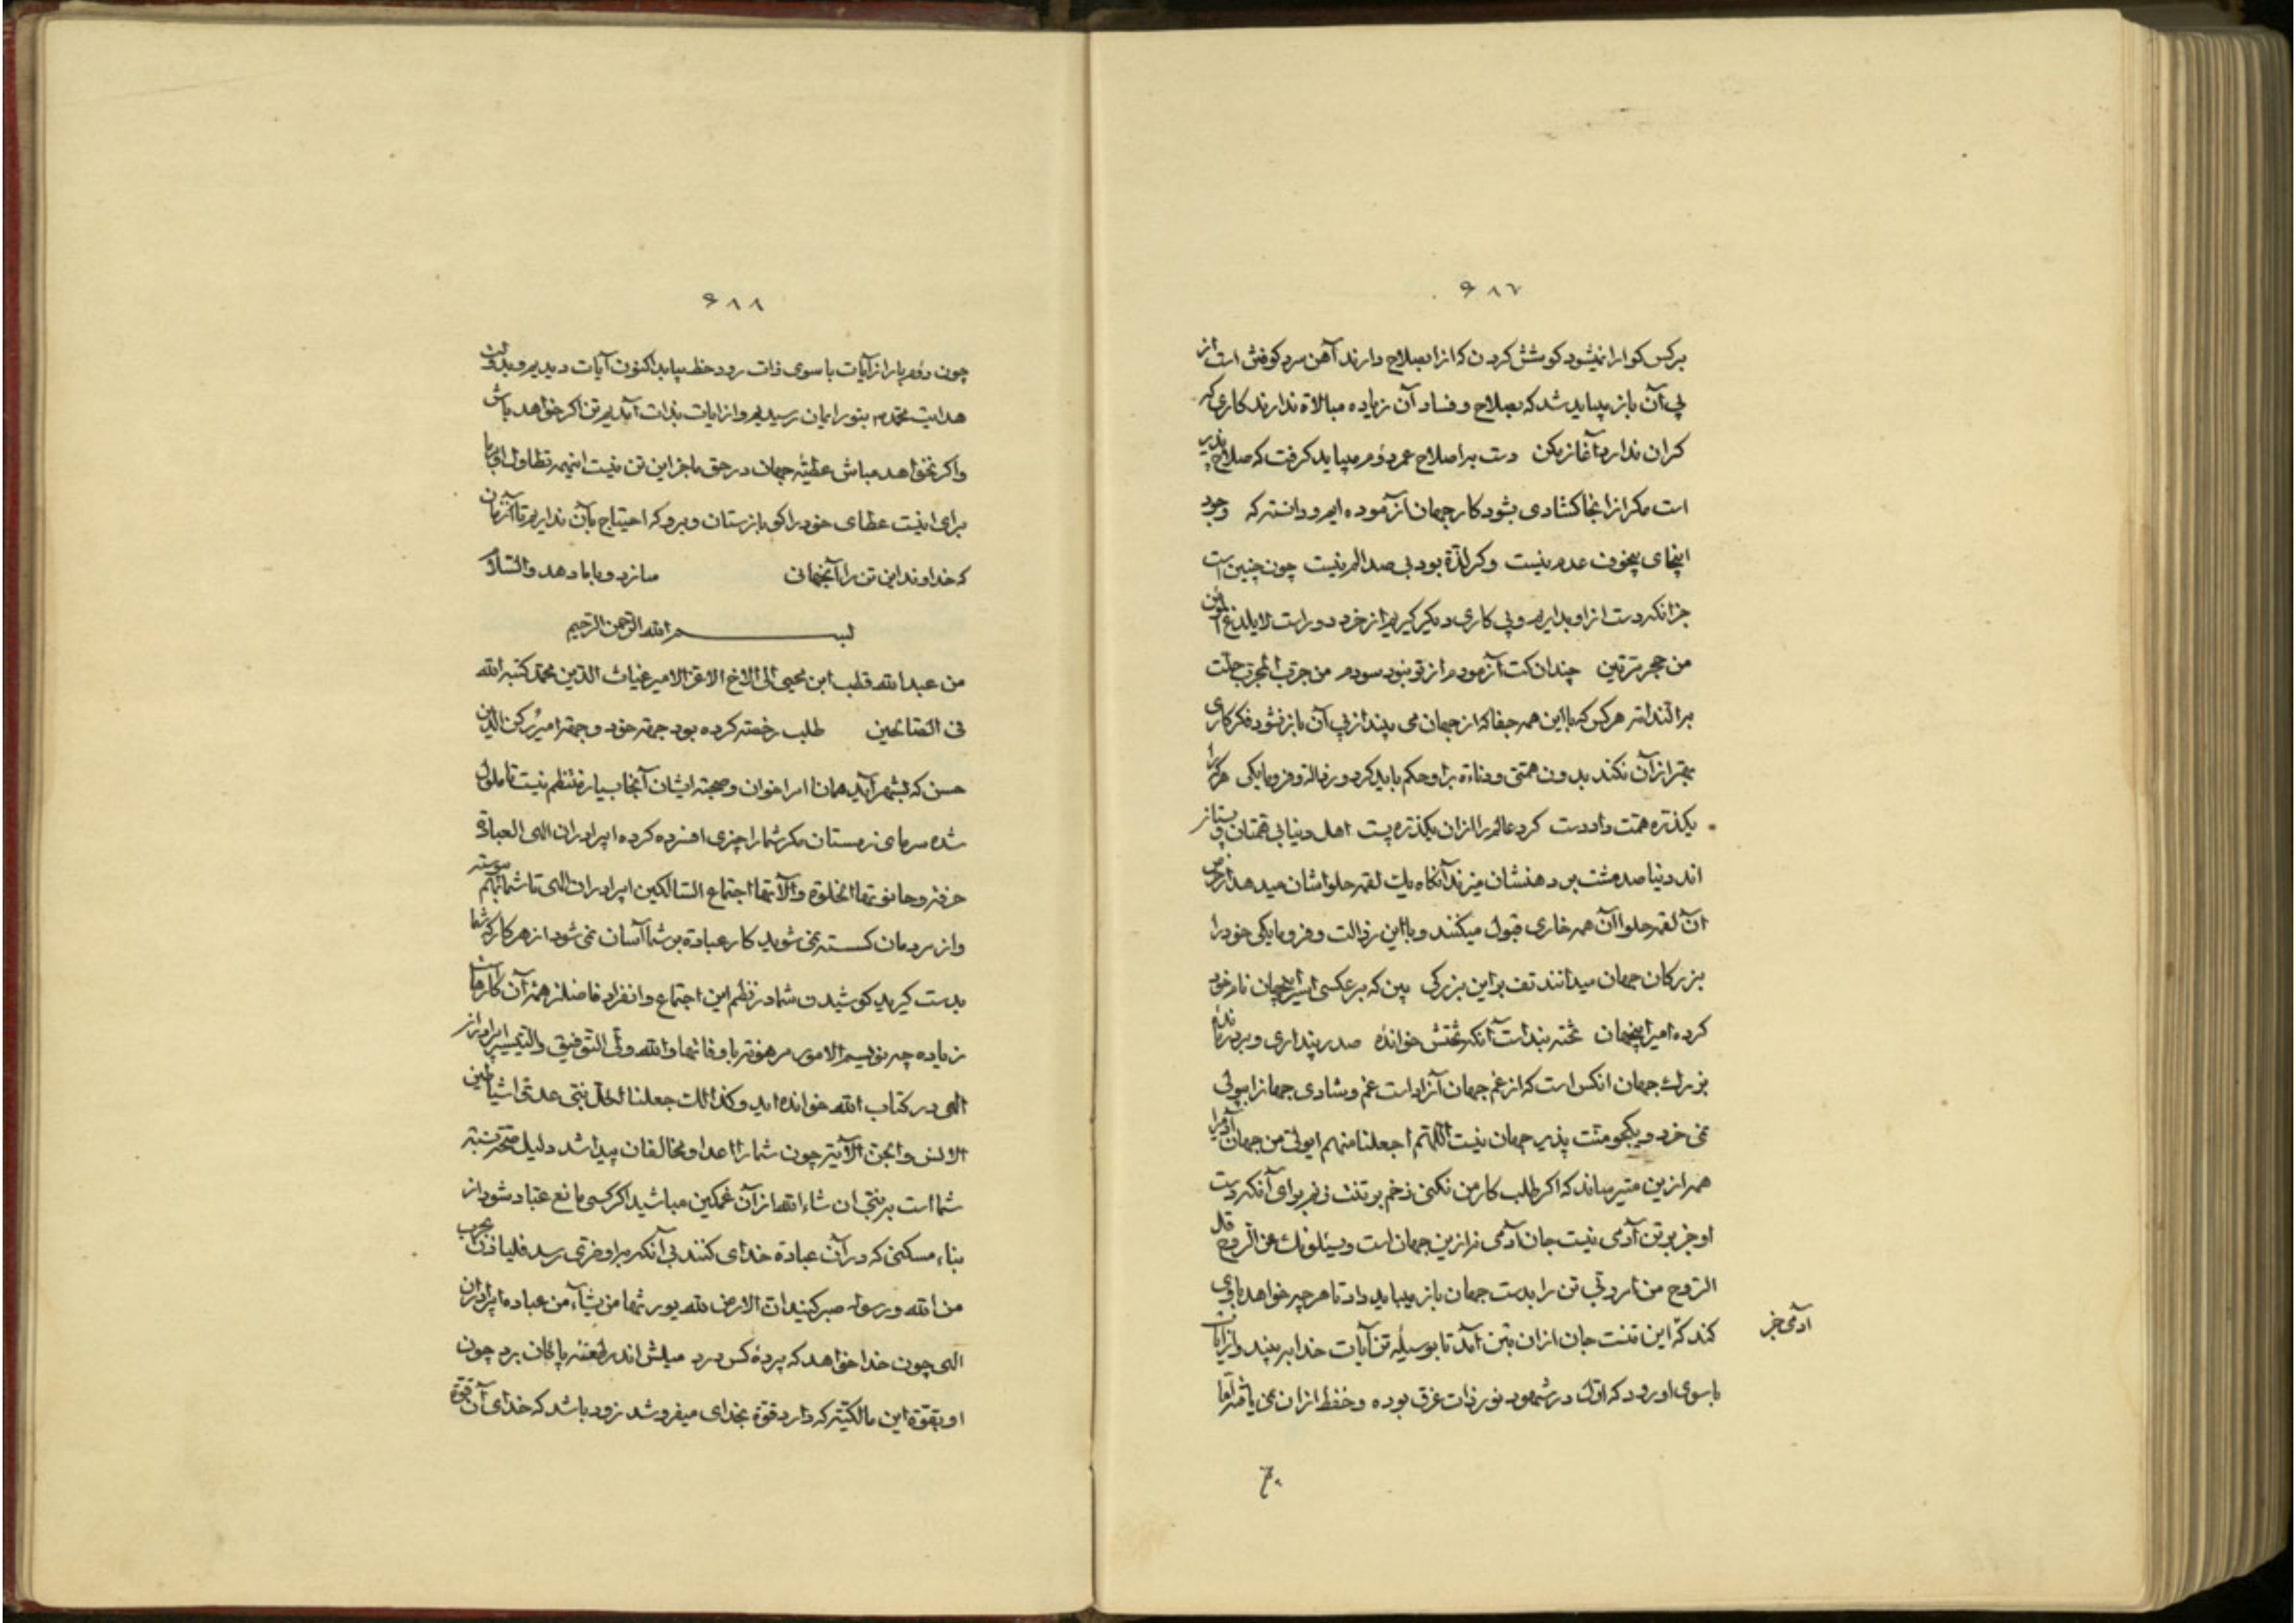 ۶۸۷
برکس کوارا نیشود کوشش کردن که از اصلاح دارند آهن سرد کوفتن است از
پی آن باز میباید شد که بصلاح و فساد آن زیاده مبالاة ندارند کاری که
کران ندارد آغاز مکن دست براصلاح عمر دوم میباید کرفت که صلاح پذیر
است مکر از آنجا کشادی بشود کار جهان آزموده ایم و دانسته که وجود
اینجای بیخوف عدم نیست وکر لذة بود بی صد الم نیست چون چنین است
جز آنکه دست از او بداریم و پی کاری دیکر کیریم از خرد دور است لا یلدغ المؤمن
من جحر مرتین چندان کت آزمودم از تو نبود سودم من جرب المجرب حلت
به الندامه هرکس که با این همه جفا که از جهان می بیند از پی آن باز نشود فکر کاری
بهتر از آن نکند بدون همتی و دناءة براو حکم باید کرد و رذالة و فرومایکی هرکرا
یکذره همت داد دست کرد عالم را از ان یکذره پست اهل دنیا بی همتان و پستان
اند دنیا صد مشت بر دهنشان میزند آنکاه یک لقمه حلواشان میدهد از حرص
آن لقمه حلوا آن همه خاری قبول میکنند و با این رذالت و فرومایکی خود را
بزرکان جهان میدانند تف بر این بزرکی بین که بر عکسی اسیر اینجهان نام خود
کرده امیر اینجهان تخته بند است آنکه تختش خوانده صدر پنداری و بر در مانده
بزرک جهان انکس است که از غم جهان آزاد است غم و شادی جهان را بپولی
نمی خرد و بیکجو منت پذیر جهان نیست اللهم اجعلنا منهم ای ولی من جهان آدم را
همه از این متیرساند که اکر طلب کار من نکنی زخم بر تنت زنم برای آنکه دست
او جز بر تن آدمی نیست جان آدمی نه از این جهان است ویسئلونک عن الروح قل
الروح من امر ربی تن را بدست جهان باز میباید داد تا هرچه خواهد با وی
کند که این تنت جان از ان بتن آمد تا بوسیله تن آیات خدا به بیند و از آیات
با سوی او رود که اول در شهود نور ذات غرق بوده و حفظ از ان نمی یافته اما
آدمی جز
۶۸۸
چون دوم بار از آیات با سوی ذات رود حظ بیابد اکنون آیات دیدیم و بدولت
هدایت محمدم بنور ایمان رسیدیم و از ایات بذات آمدیم تن اکر خواهد باش
واکر نخواهد مباش عطیه جهان در حق ما جز این تن نیست اینهمه تطاول او با ما
برای اینست عطای خود را کو باز ستان و برو که احتیاج بآن نداریم تا آنزمان
که خداوند این تن را آنجهانی سازد و با ما دهد والسلام
بسم الله الرحمن الرحیم
من عبدالله قطب ابن محیی الی الاخ الاعز الامیر غیاث الدین محمد کتبه الله
فی الصالحین طلب رخصه کرده بود جهة خود و جهة امیر رکن الدین
حسن که بشهر آید همانا امر اخوان و صحبة ایشان آنجا بسیار منتظم نیست تا ملول
شده سرمای زمستان مکر شما را چیزی افسرده کرده ای برادران الهی العبادة
حرفة وحانوتها الخلوة وآلاتها اجتماع السالکین ای برادران الهی تا شما بهم پیوسته
واز مردمان کسسته نمی شوید کار عبادة بر شما آسان نمی شود از هر کار که شما
بدست کیرید کوشیدن شما در نظم این اجتماع و انفراد فاضلتر همه آن کارهاست
زیاده چه نویسم الامور مرهونة باوقاتها والله ولی التوفیق والتیسیر ای برادران
الهی در کتاب الله خوانده اید وکذلک جعلنا لکل نبی عدوا شیاطین
الانس والجن الآیة چون شما را اعدا و مخالفان پیدا شد دلیل صحة نسبة
شماست بر نبی ان شاء الله از آن غمکین مباشید اکر کسی مانع عباد شود از
بناء مسکنی که در آن عبادة خدای کنند بی آنکه براو ضرری رسد فلیأذن بحرب
من الله ورسوله صبر کنید ان الارض لله یورثها من یشاء من عباده ای برادران
الهی چون خدا خواهد که پرده کس درد میلش اندر طعنه پاکان برد چون
او بقوة این مالکیة که دارد قوة بخدای میفروشد زود باشد که خدای آن قوة